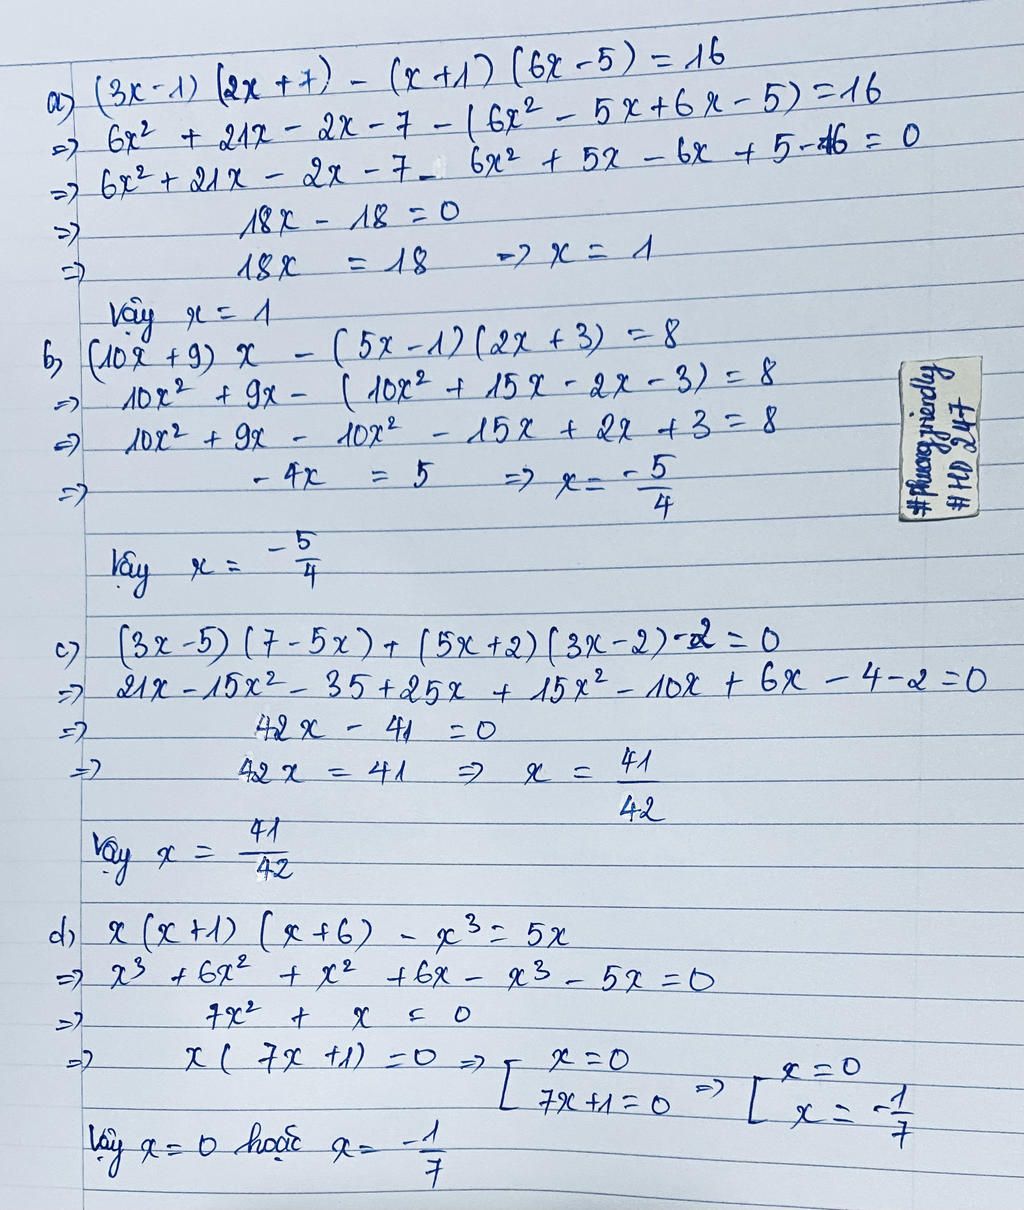 a) (3x-1) (2x+7) - (x+1) (6x-5) = 16
=> 6x² + 21x - 2x - 7 - (6x² - 5x + 6x - 5) = 16
=> 6x² + 21x - 2x - 7 - 6x² + 5x - 6x + 5 - 16 = 0
=> 18x - 18 = 0
=> 18x = 18 => x = 1
Vậy x = 1
b) (10x + 9) x - (5x - 1) (2x + 3) = 8
=> 10x² + 9x - (10x² + 15x - 2x - 3) = 8
=> 10x² + 9x - 10x² - 15x + 2x + 3 = 8
=> -4x = 5 => x = -5/4
Vậy x = -5/4
c) (3x-5) (7-5x) + (5x+2) (3x-2) - 2 = 0
=> 21x - 15x² - 35 + 25x + 15x² - 10x + 6x - 4 - 2 = 0
=> 42x - 41 = 0
=> 42x = 41 => x = 41/42
Vậy x = 41/42
d) x (x+1) (x+6) - x³ = 5x
=> x³ + 6x² + x² + 6x - x³ - 5x = 0
=> 7x² + x = 0
=> x ( 7x + 1) = 0 => [ x = 0 => [ x = 0
7x + 1 = 0 x = -1/7
Vậy x = 0 hoặc x = -1/7
#phuongfriendly
#HD 247